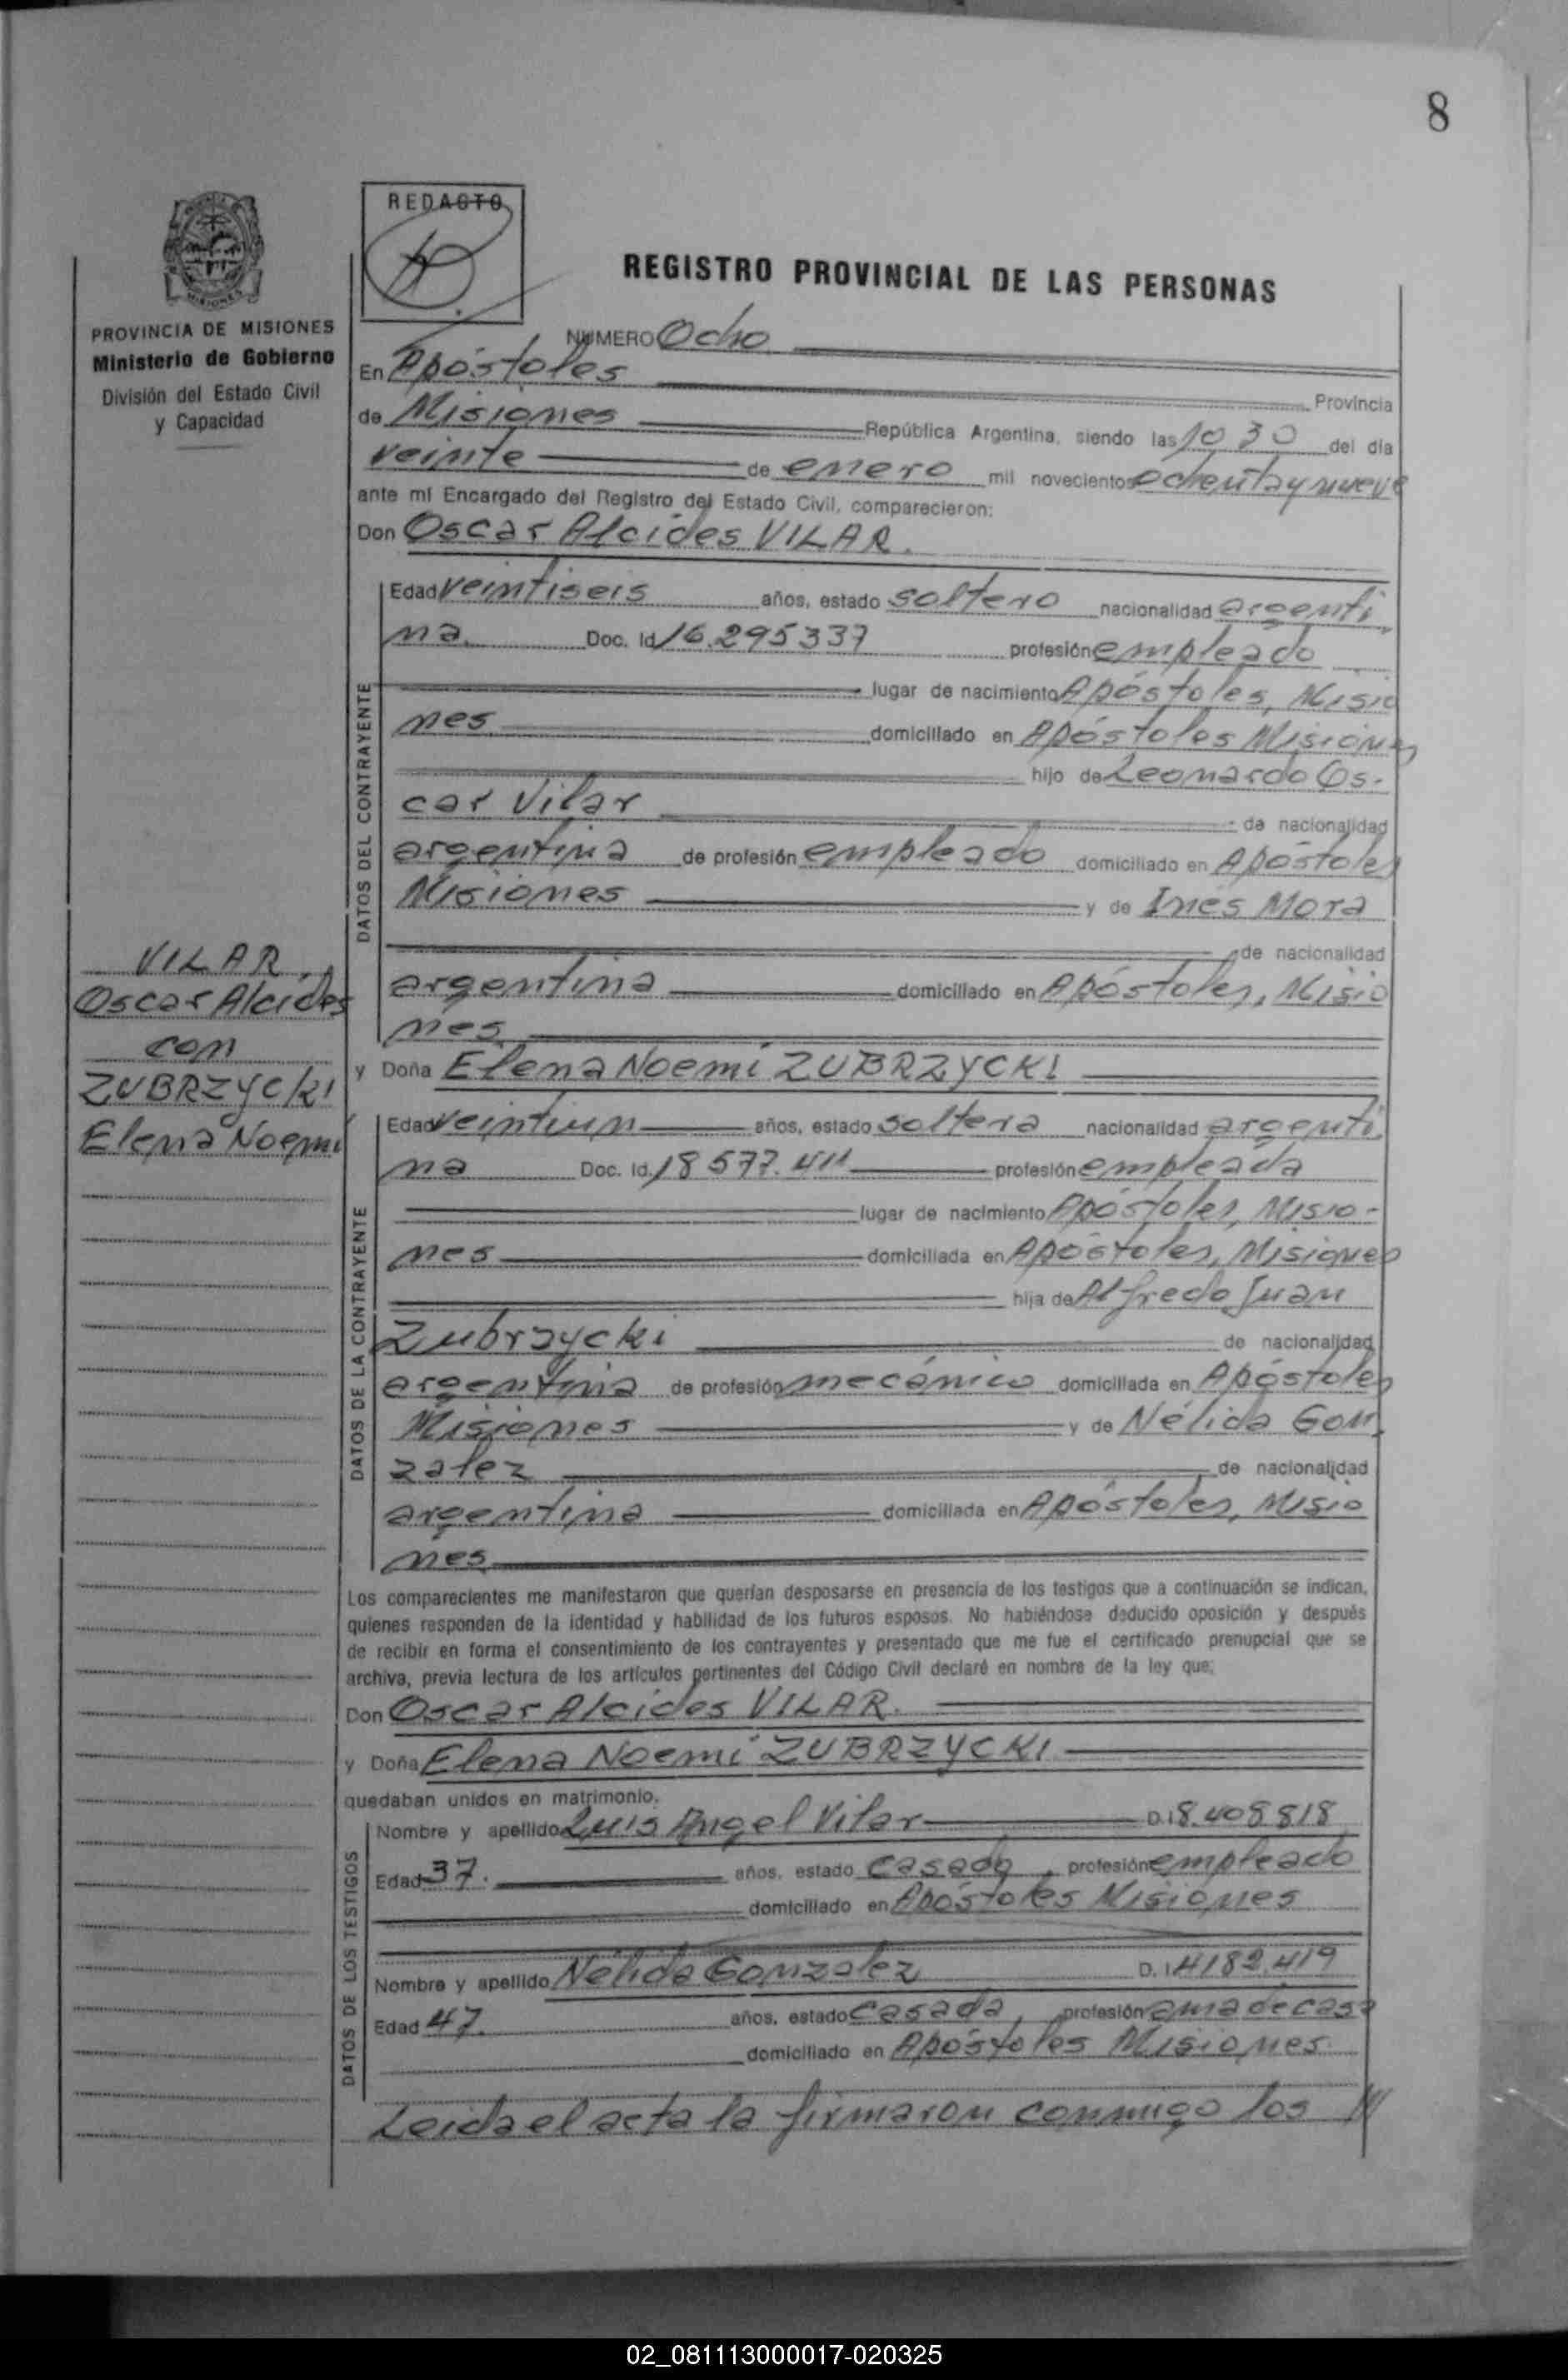 8
REDACTO
REGISTRO PROVINCIAL DE LAS PERSONAS
MISIONES
PROVINCIA DE MISIONES
Ministerio de Gobierno
División del Estado Civil
y Capacidad
VILAR,
Oscar Alcides
con
ZUBRZYCKI
Elena Noemi
NUMERO Ocho
En Apóstoles
Provincia
de Misiones República Argentina, siendo las 10 30 del día
veinte de enero mil novecientos ochenta y nueve
ante mí Encargado del Registro del Estado Civil, comparecieron:
Don Oscar Alcides VILAR.
DATOS DEL CONTRAYENTE
Edad veintiseis años, estado soltero nacionalidad argenti
na. Doc. Id 16.295337 profesión empleado
lugar de nacimiento Apóstoles, Misio
nes domiciliado en Apóstoles Misiones
hijo de Leonardo Os-
car Vilar de nacionalidad
argentina de profesión empleado domiciliado en Apóstoles
Misiones y de Inés Mora
de nacionalidad
argentina domiciliado en Apóstoles, Misio
nes
y Doña Elena Noemí ZUBRZYCKI
DATOS DE LA CONTRAYENTE
Edad veintiun años, estado soltera nacionalidad argenti
na Doc. Id. 18 577.411 profesión empleada
lugar de nacimiento Apóstoles, Misio-
nes domiciliada en Apóstoles, Misiones
hija de Alfredo Juan
Zubrzycki de nacionalidad
argentina de profesión mecánico domiciliada en Apóstoles
Misiones y de Nélida Gon
zalez de nacionalidad
argentina domiciliada en Apóstoles, Misio
nes
Los comparecientes me manifestaron que querían desposarse en presencia de los testigos que a continuación se indican,
quienes responden de la identidad y habilidad de los futuros esposos. No habiéndose deducido oposición y después
de recibir en forma el consentimiento de los contrayentes y presentado que me fue el certificado prenupcial que se
archiva, previa lectura de los artículos pertinentes del Código Civil declaré en nombre de la ley que:
Don Oscar Alcides VILAR.
y Doña Elena Noemí ZUBRZYCKI
quedaban unidos en matrimonio.
DATOS DE LOS TESTIGOS
Nombre y apellido Luis Angel Vilar D.I 8.408818
Edad 37. años, estado casado, profesión empleado
domiciliado en Apóstoles Misiones
Nombre y apellido Nélida Gonzalez D.I 4182.419
Edad 47. años, estado casada, profesión ama de casa
domiciliado en Apóstoles Misiones.
Leida el acta la firmaron conmigo los
02_081113000017-020325